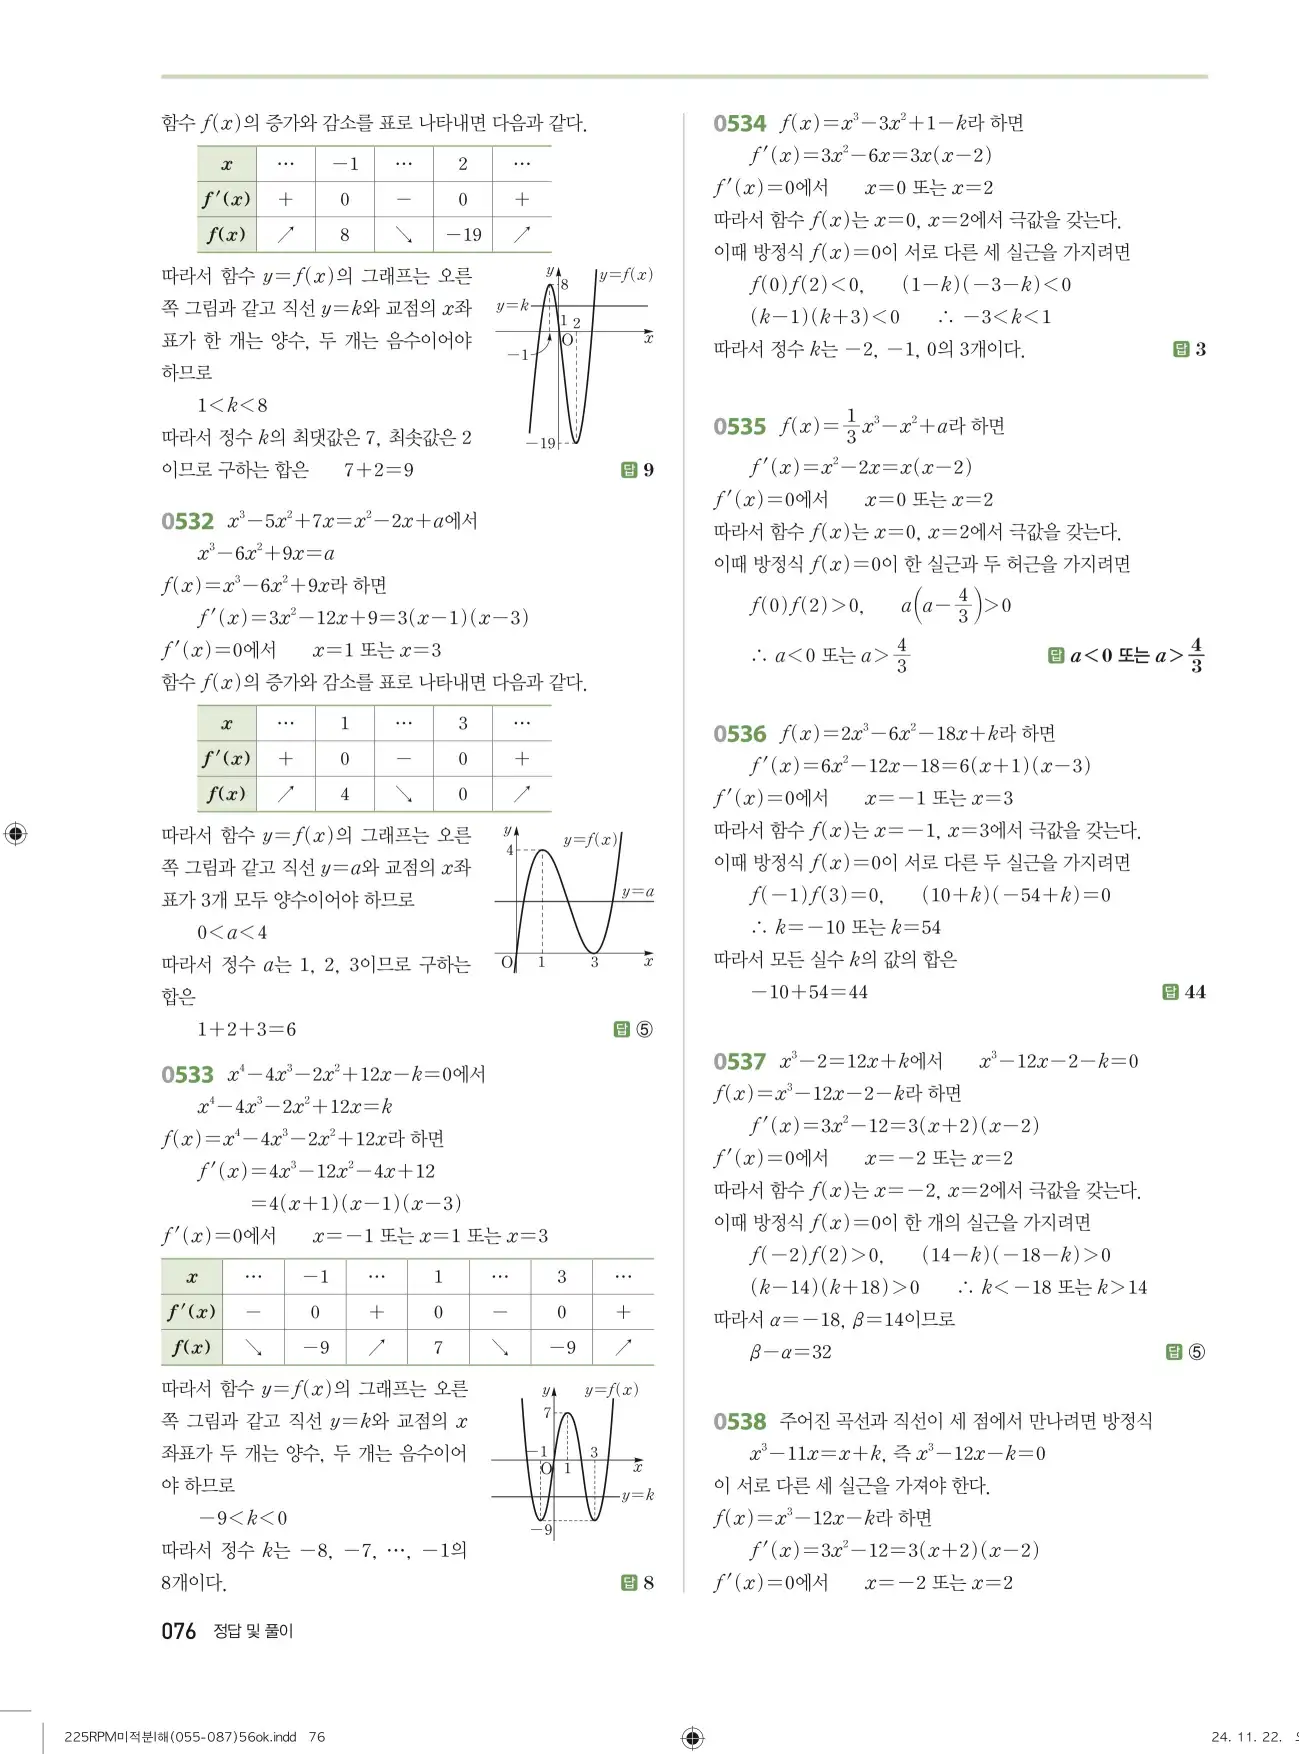 함수 f(x)의 증가와 감소를 표로 나타내면 다음과 같다.
x ⋯ −1 ⋯ 2 ⋯
f′(x) + 0 − 0 +
f(x) ↗ 8 ↘ −19 ↗
따라서 함수 y=f(x)의 그래프는 오른
쪽 그림과 같고 직선 y=k와 교점의 x좌
표가 한 개는 양수, 두 개는 음수이어야
하므로
1<k<8
따라서 정수 k의 최댓값은 7, 최솟값은 2
이므로 구하는 합은 7+2=9
답 9
y
8
y=f(x)
y=k
1 2
O
x
−1
−19
0532 x³−5x²+7x=x²−2x+a에서
x³−6x²+9x=a
f(x)=x³−6x²+9x라 하면
f′(x)=3x²−12x+9=3(x−1)(x−3)
f′(x)=0에서 x=1 또는 x=3
함수 f(x)의 증가와 감소를 표로 나타내면 다음과 같다.
x ⋯ 1 ⋯ 3 ⋯
f′(x) + 0 − 0 +
f(x) ↗ 4 ↘ 0 ↗
따라서 함수 y=f(x)의 그래프는 오른
쪽 그림과 같고 직선 y=a와 교점의 x좌
표가 3개 모두 양수이어야 하므로
0<a<4
따라서 정수 a는 1, 2, 3이므로 구하는
합은
1+2+3=6
답 ⑤
y
4
y=f(x)
y=a
O 1 3 x
0533 x⁴−4x³−2x²+12x−k=0에서
x⁴−4x³−2x²+12x=k
f(x)=x⁴−4x³−2x²+12x라 하면
f′(x)=4x³−12x²−4x+12
=4(x+1)(x−1)(x−3)
f′(x)=0에서 x=−1 또는 x=1 또는 x=3
x ⋯ −1 ⋯ 1 ⋯ 3 ⋯
f′(x) − 0 + 0 − 0 +
f(x) ↘ −9 ↗ 7 ↘ −9 ↗
따라서 함수 y=f(x)의 그래프는 오른
쪽 그림과 같고 직선 y=k와 교점의 x
좌표가 두 개는 양수, 두 개는 음수이어
야 하므로
−9<k<0
따라서 정수 k는 −8, −7, ⋯, −1의
8개이다.
답 8
y
y=f(x)
7
−1 3
O 1 x
y=k
−9
0534 f(x)=x³−3x²+1−k라 하면
f′(x)=3x²−6x=3x(x−2)
f′(x)=0에서 x=0 또는 x=2
따라서 함수 f(x)는 x=0, x=2에서 극값을 갖는다.
이때 방정식 f(x)=0이 서로 다른 세 실근을 가지려면
f(0)f(2)<0, (1−k)(−3−k)<0
(k−1)(k+3)<0 ∴ −3<k<1
따라서 정수 k는 −2, −1, 0의 3개이다. 답 3
0535 f(x)=1/3x³−x²+a라 하면
f′(x)=x²−2x=x(x−2)
f′(x)=0에서 x=0 또는 x=2
따라서 함수 f(x)는 x=0, x=2에서 극값을 갖는다.
이때 방정식 f(x)=0이 한 실근과 두 허근을 가지려면
f(0)f(2)>0, a(a−4/3)>0
∴ a<0 또는 a>4/3 답 a<0 또는 a>4/3
0536 f(x)=2x³−6x²−18x+k라 하면
f′(x)=6x²−12x−18=6(x+1)(x−3)
f′(x)=0에서 x=−1 또는 x=3
따라서 함수 f(x)는 x=−1, x=3에서 극값을 갖는다.
이때 방정식 f(x)=0이 서로 다른 두 실근을 가지려면
f(−1)f(3)=0, (10+k)(−54+k)=0
∴ k=−10 또는 k=54
따라서 모든 실수 k의 값의 합은
−10+54=44 답 44
0537 x³−2=12x+k에서 x³−12x−2−k=0
f(x)=x³−12x−2−k라 하면
f′(x)=3x²−12=3(x+2)(x−2)
f′(x)=0에서 x=−2 또는 x=2
따라서 함수 f(x)는 x=−2, x=2에서 극값을 갖는다.
이때 방정식 f(x)=0이 한 개의 실근을 가지려면
f(−2)f(2)>0, (14−k)(−18−k)>0
(k−14)(k+18)>0 ∴ k<−18 또는 k>14
따라서 α=−18, β=14이므로
β−α=32 답 ⑤
0538 주어진 곡선과 직선이 세 점에서 만나려면 방정식
x³−11x=x+k, 즉 x³−12x−k=0
이 서로 다른 세 실근을 가져야 한다.
f(x)=x³−12x−k라 하면
f′(x)=3x²−12=3(x+2)(x−2)
f′(x)=0에서 x=−2 또는 x=2
076 정답 및 풀이
225RPM미적분I해(055-087)56ok.indd 76
24. 11. 22.